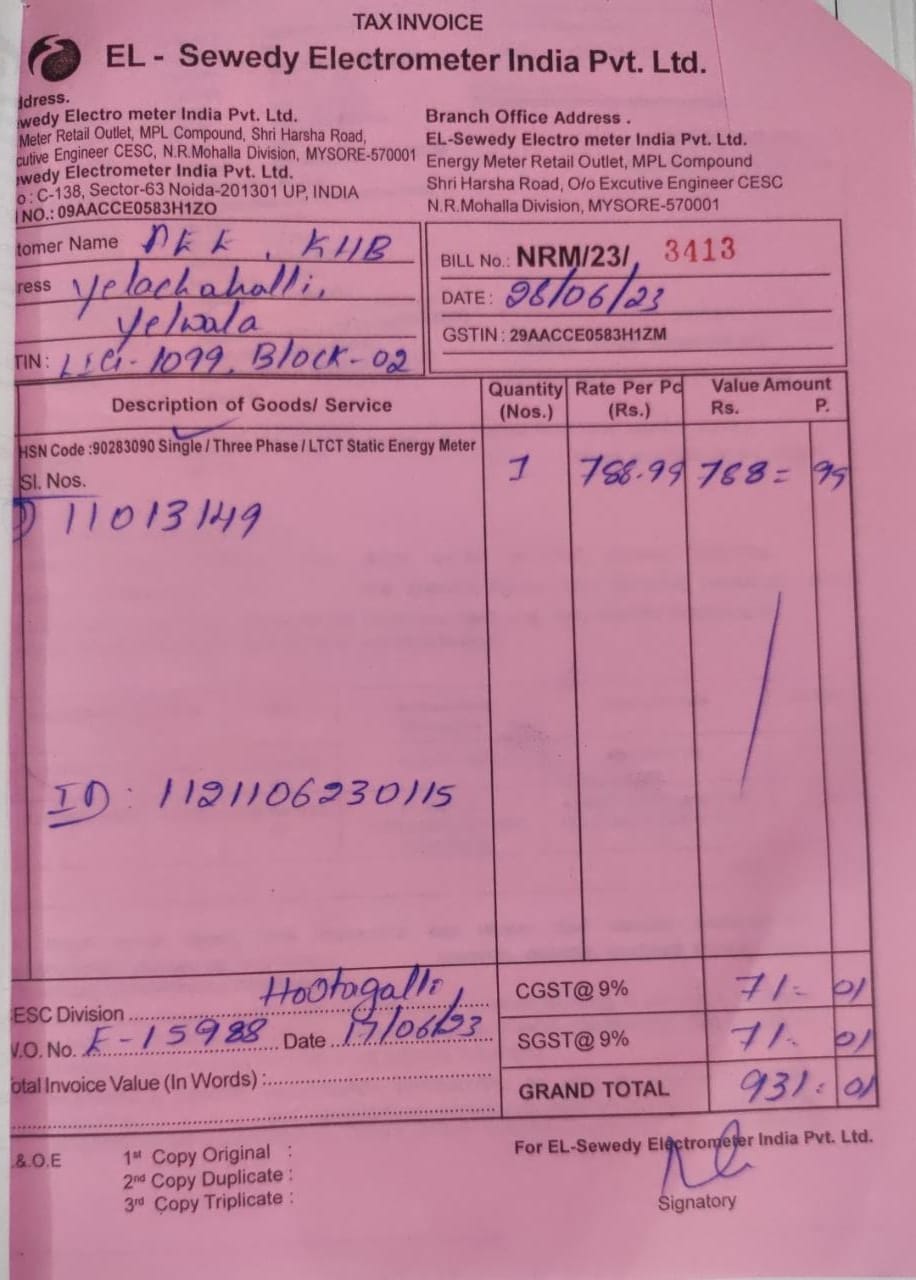 TAX INVOICE
EL - Sewedy Electrometer India Pvt. Ltd.
ddress.
wedy Electro meter India Pvt. Ltd.
Meter Retail Outlet, MPL Compound, Shri Harsha Road,
cutive Engineer CESC, N.R.Mohalla Division, MYSORE-570001
wedy Electrometer India Pvt. Ltd.
o : C-138, Sector-63 Noida-201301 UP, INDIA
NO.: 09AACCE0583H1ZO
Branch Office Address .
EL-Sewedy Electro meter India Pvt. Ltd.
Energy Meter Retail Outlet, MPL Compound
Shri Harsha Road, O/o Excutive Engineer CESC
N.R.Mohalla Division, MYSORE-570001
tomer Name KHB
ress Yelachahalli,
Yelwala
TIN : LIG-1099, Block-02
BILL No.: NRM/23/ 3413
DATE : 28/06/23
GSTIN : 29AACCE0583H1ZM
Description of Goods/ Service Quantity (Nos.) Rate Per Pc (Rs.) Value Amount Rs. P.
HSN Code :90283090 Single / Three Phase / LTCT Static Energy Meter 1 788.99 788= 99
Sl. Nos.
11013149
ID : 1121106230115
ESC Division Hootagalli
V.O. No. E-15988 Date 17/06/23
otal Invoice Value (In Words) :
CGST@ 9% 71- 01
SGST@ 9% 71- 01
GRAND TOTAL 931= 01
.&.O.E
1st Copy Original :
2nd Copy Duplicate :
3rd Copy Triplicate :
For EL-Sewedy Electrometer India Pvt. Ltd.
Signatory